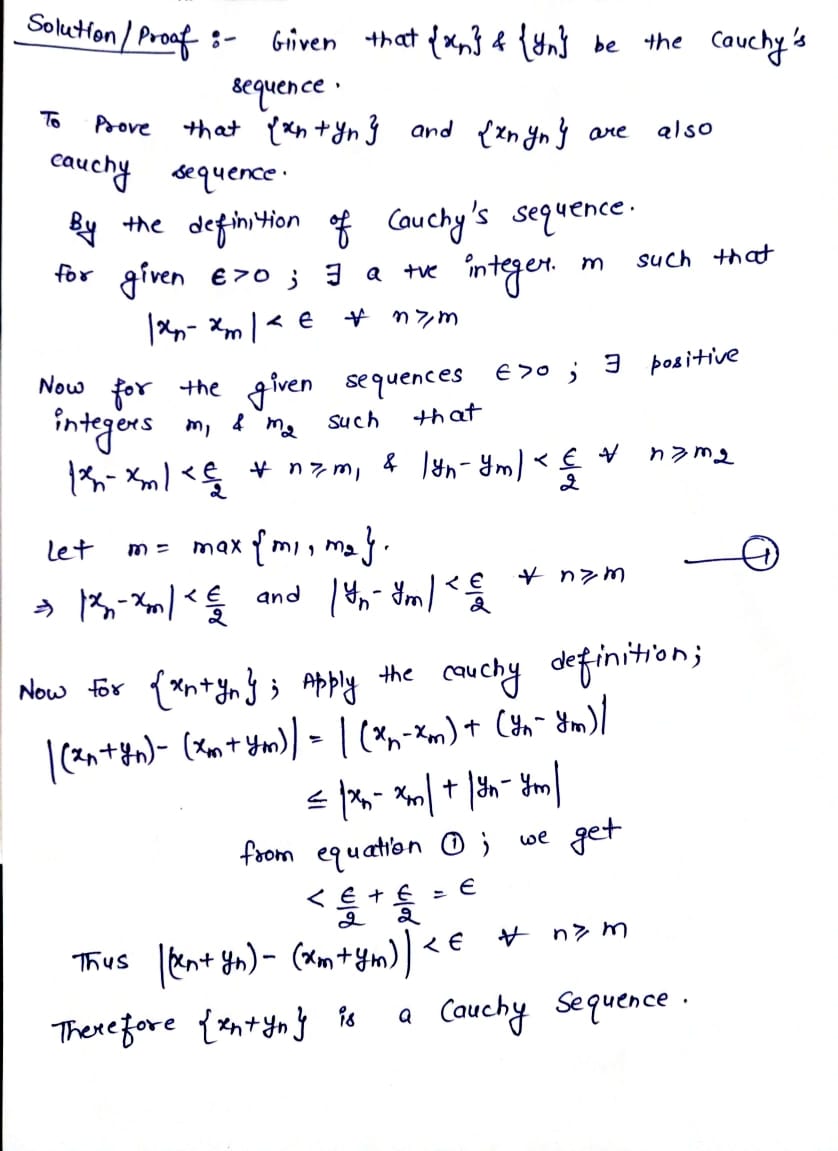 Solution/Proof :- Giiven that {xₙ} & {yₙ} be the Cauchy's
sequence.
To Prove that {xₙ+yₙ} and {xₙyₙ} are also
cauchy sequence.
By the definition of Cauchy's sequence.
for given ∈>0 ; ∃ a +ve integer. m such that
|xₙ- xₘ| < ∈ ∀ n⩾m
Now for the given sequences ∈>0 ; ∃ positive
integers m₁ & m₂ such that
|xₙ- xₘ| < ∈/2 ∀ n⩾m₁ & |yₙ-yₘ| < ∈/2 ∀ n⩾m₂
Let m = max {m₁, m₂}.
⇒ |xₙ-xₘ| < ∈/2 and |yₙ-yₘ| < ∈/2 ∀ n⩾m —①
Now for {xₙ+yₙ} ; Apply the cauchy definition;
|(xₙ+yₙ)- (xₘ+yₘ)| = |(xₙ-xₘ)+ (yₙ-yₘ)|
≤ |xₙ- xₘ| + |yₙ-yₘ|
from equation ① ; we get
< ∈/2 + ∈/2 = ∈
Thus |(xₙ+yₙ)- (xₘ+yₘ)| < ∈ ∀ n⩾m
Therefore {xₙ+yₙ} is a Cauchy Sequence.